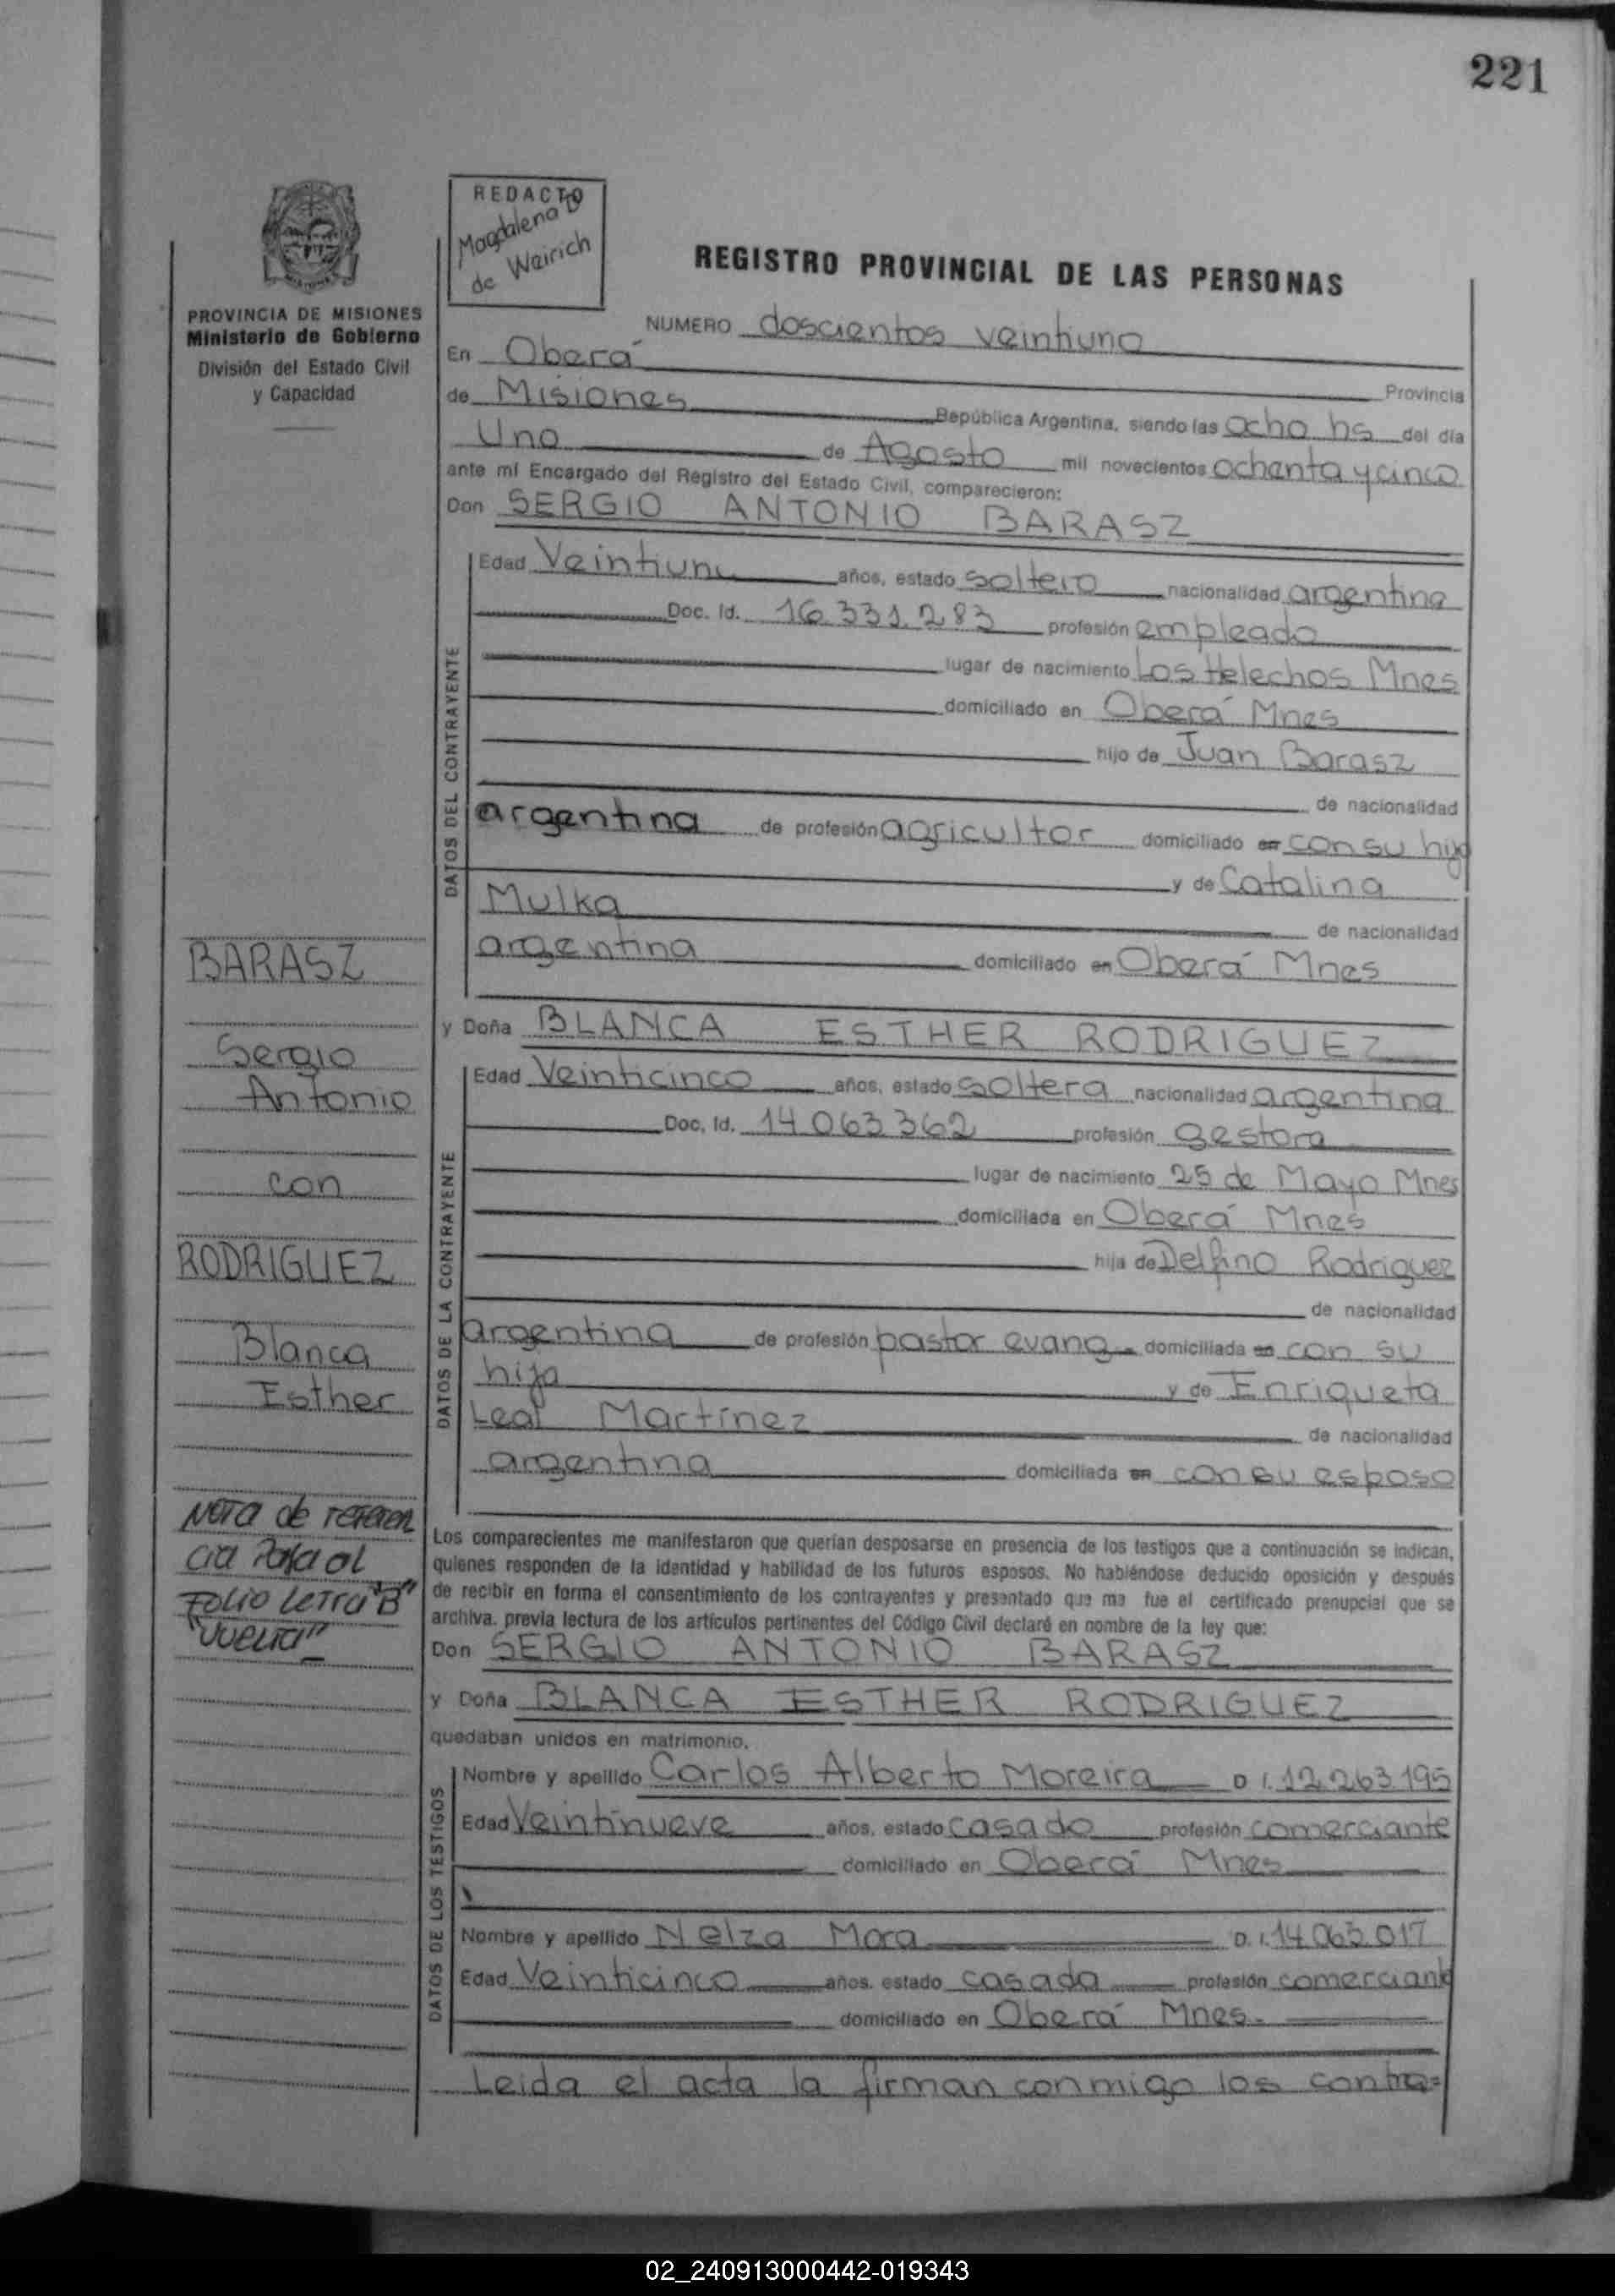 221
REDACTO
Magdalena B
de Weirich
PROVINCIA DE MISIONES
Ministerio de Gobierno
División del Estado Civil
y Capacidad
REGISTRO PROVINCIAL DE LAS PERSONAS
NUMERO doscientos veintiuno
En Oberá Provincia
de Misiones República Argentina, siendo las ocho hs del día
Uno de Agosto mil novecientos ochenta y cinco
ante mí Encargado del Registro del Estado Civil, comparecieron:
Don SERGIO ANTONIO BARASZ
DATOS DEL CONTRAYENTE
Edad Veintiuno años, estado soltero nacionalidad argentina
Doc. Id. 16.331.283 profesión empleado
lugar de nacimiento Los Helechos Mnes
domiciliado en Oberá Mnes
hijo de Juan Barasz
de nacionalidad
argentina de profesión agricultor domiciliado en con su hijo
y de Catalina
Mulka de nacionalidad
argentina domiciliado en Oberá Mnes
y Doña BLANCA ESTHER RODRIGUEZ
DATOS DE LA CONTRAYENTE
Edad Veinticinco años, estado soltera nacionalidad argentina
Doc. Id. 14 063 362 profesión gestora
lugar de nacimiento 25 de Mayo Mnes
domiciliada en Oberá Mnes
hija de Delfino Rodriguez
de nacionalidad
argentina de profesión pastor evang. domiciliada en con su
hija y de Enriqueta
Leal Martínez de nacionalidad
argentina domiciliada en con su esposo
BARASZ
Sergio
Antonio
con
RODRIGUEZ
Blanca
Esther
Nota de referen
cia Pasa al
Folio Letra "B"
"vuelta"
Los comparecientes me manifestaron que querían desposarse en presencia de los testigos que a continuación se indican,
quienes responden de la identidad y habilidad de los futuros esposos. No habiéndose deducido oposición y después
de recibir en forma el consentimiento de los contrayentes y presentado que me fue el certificado prenupcial que se
archiva. previa lectura de los artículos pertinentes del Código Civil declaré en nombre de la ley que:
Don SERGIO ANTONIO BARASZ
y Doña BLANCA ESTHER RODRIGUEZ
quedaban unidos en matrimonio.
DATOS DE LOS TESTIGOS
Nombre y apellido Carlos Alberto Moreira D. I. 12.263.195
Edad Veintinueve años, estado casado profesión comerciante
domiciliado en Oberá Mnes
Nombre y apellido Nelza Mora D. I. 14.063.017
Edad Veinticinco años. estado casada profesión comerciante
domiciliado en Oberá Mnes.
Leida el acta la firman conmigo los contra=
02_240913000442-019343